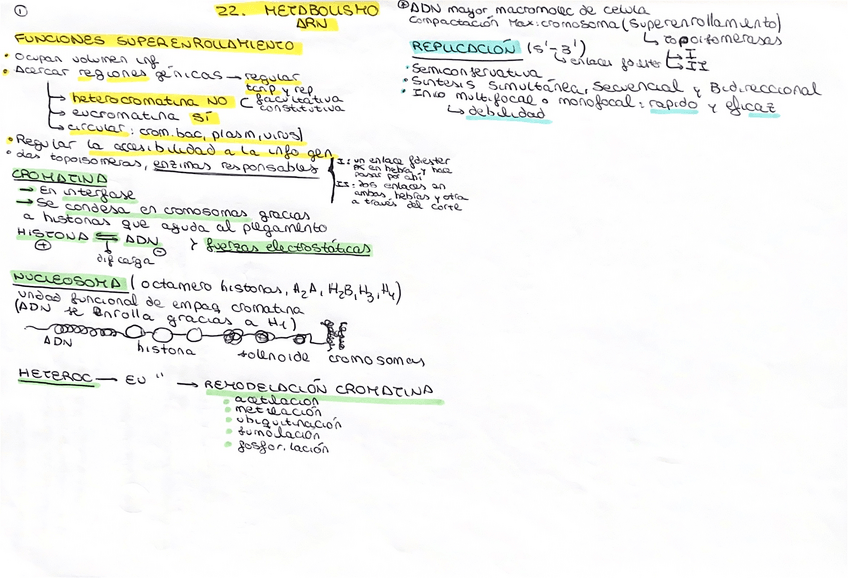 ①
22. METABOLISMO
ARN
FUNCIONES SUPERENROLLAMIENTO
• Ocupan volumen inf
• Acercar regiones génicas → regular
tcrip y rep
→ heterocromatina NO < facultativa
constitutiva
→ eucromatina sí
→ circular: crom.bac, plasm, virus)
• Regular la accesibilidad a la info gen
• las topoisomeras, enzimas responsables
I: un enlace fdiester
en hebra y hace
pasar por ahí
II: dos enlaces en
ambas hebras y otra
a través del corte
CROMATINA
→ En interfase
→ Se condesa en cromosomas gracias
a histonas que ayuda al plegamento
HISTONA ⇌ ADN y fuerzas electrostáticas
⊕ ⊖
dif carga
NUCLEOSOMA (octamero histonas, A2A, H2B, H3, H4)
unidad funcional de empaq cromatina
(ADN se enrolla gracias a H1)
ADN histona solenoide cromosomas
HETEROC → EU " → REMODELACIÓN CROMATINA
• acetilación
• metilación
• ubiquitinación
• sumolación
• fosforilación
ADN mayor macromolec de celula
Compactación Max: cromosoma (superenrollamiento)
↳ topoisomerasas
I
II
REPLICACIÓN (5'-3')
↳ enlaces fdiester
• Semiconservativa
• Sintesis simultánea, secuencial y Bidireccional
• Inicio multifocal o monofocal: rapido y eficaz
↳ debilidad